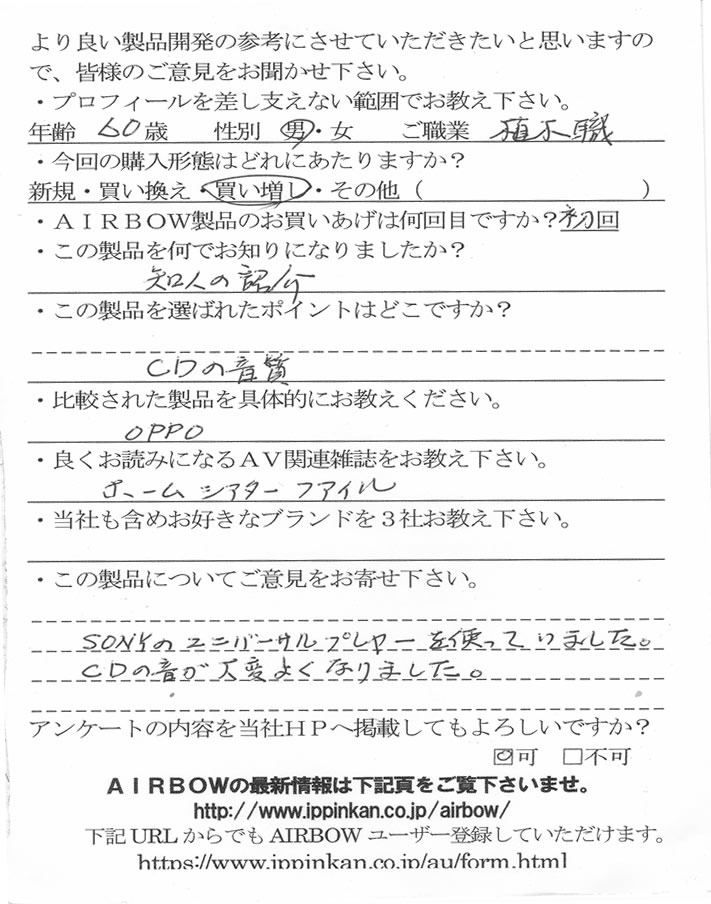 より良い製品開発の参考にさせていただきたいと思いますの
で、皆様のご意見をお聞かせ下さい。
・プロフィールを差し支えない範囲でお教え下さい。
年齢 60歳 性別 男・女 ご職業 植木職
・今回の購入形態はどれにあたりますか？
新規・買い換え・買い増し・その他（ ）
・ＡＩＲＢＯＷ製品のお買いあげは何回目ですか？初回
・この製品を何でお知りになりましたか？
知人の紹介
・この製品を選ばれたポイントはどこですか？
CDの音質
・比較された製品を具体的にお教えください。
OPPO
・良くお読みになるＡＶ関連雑誌をお教え下さい。
ホームシアターファイル
・当社も含めお好きなブランドを３社お教え下さい。
・この製品についてご意見をお寄せ下さい。
SONYのユニバーサルプレヤーを使っていました。
CDの音が大変よくなりました。
アンケートの内容を当社ＨＰへ掲載してもよろしいですか？
☑可 □不可
ＡＩＲＢＯＷの最新情報は下記頁をご覧下さいませ。
http://www.ippinkan.co.jp/airbow/
下記 URL からでも AIRBOW ユーザー登録していただけます。
https://www.ippinkan.co.jp/au/form.html